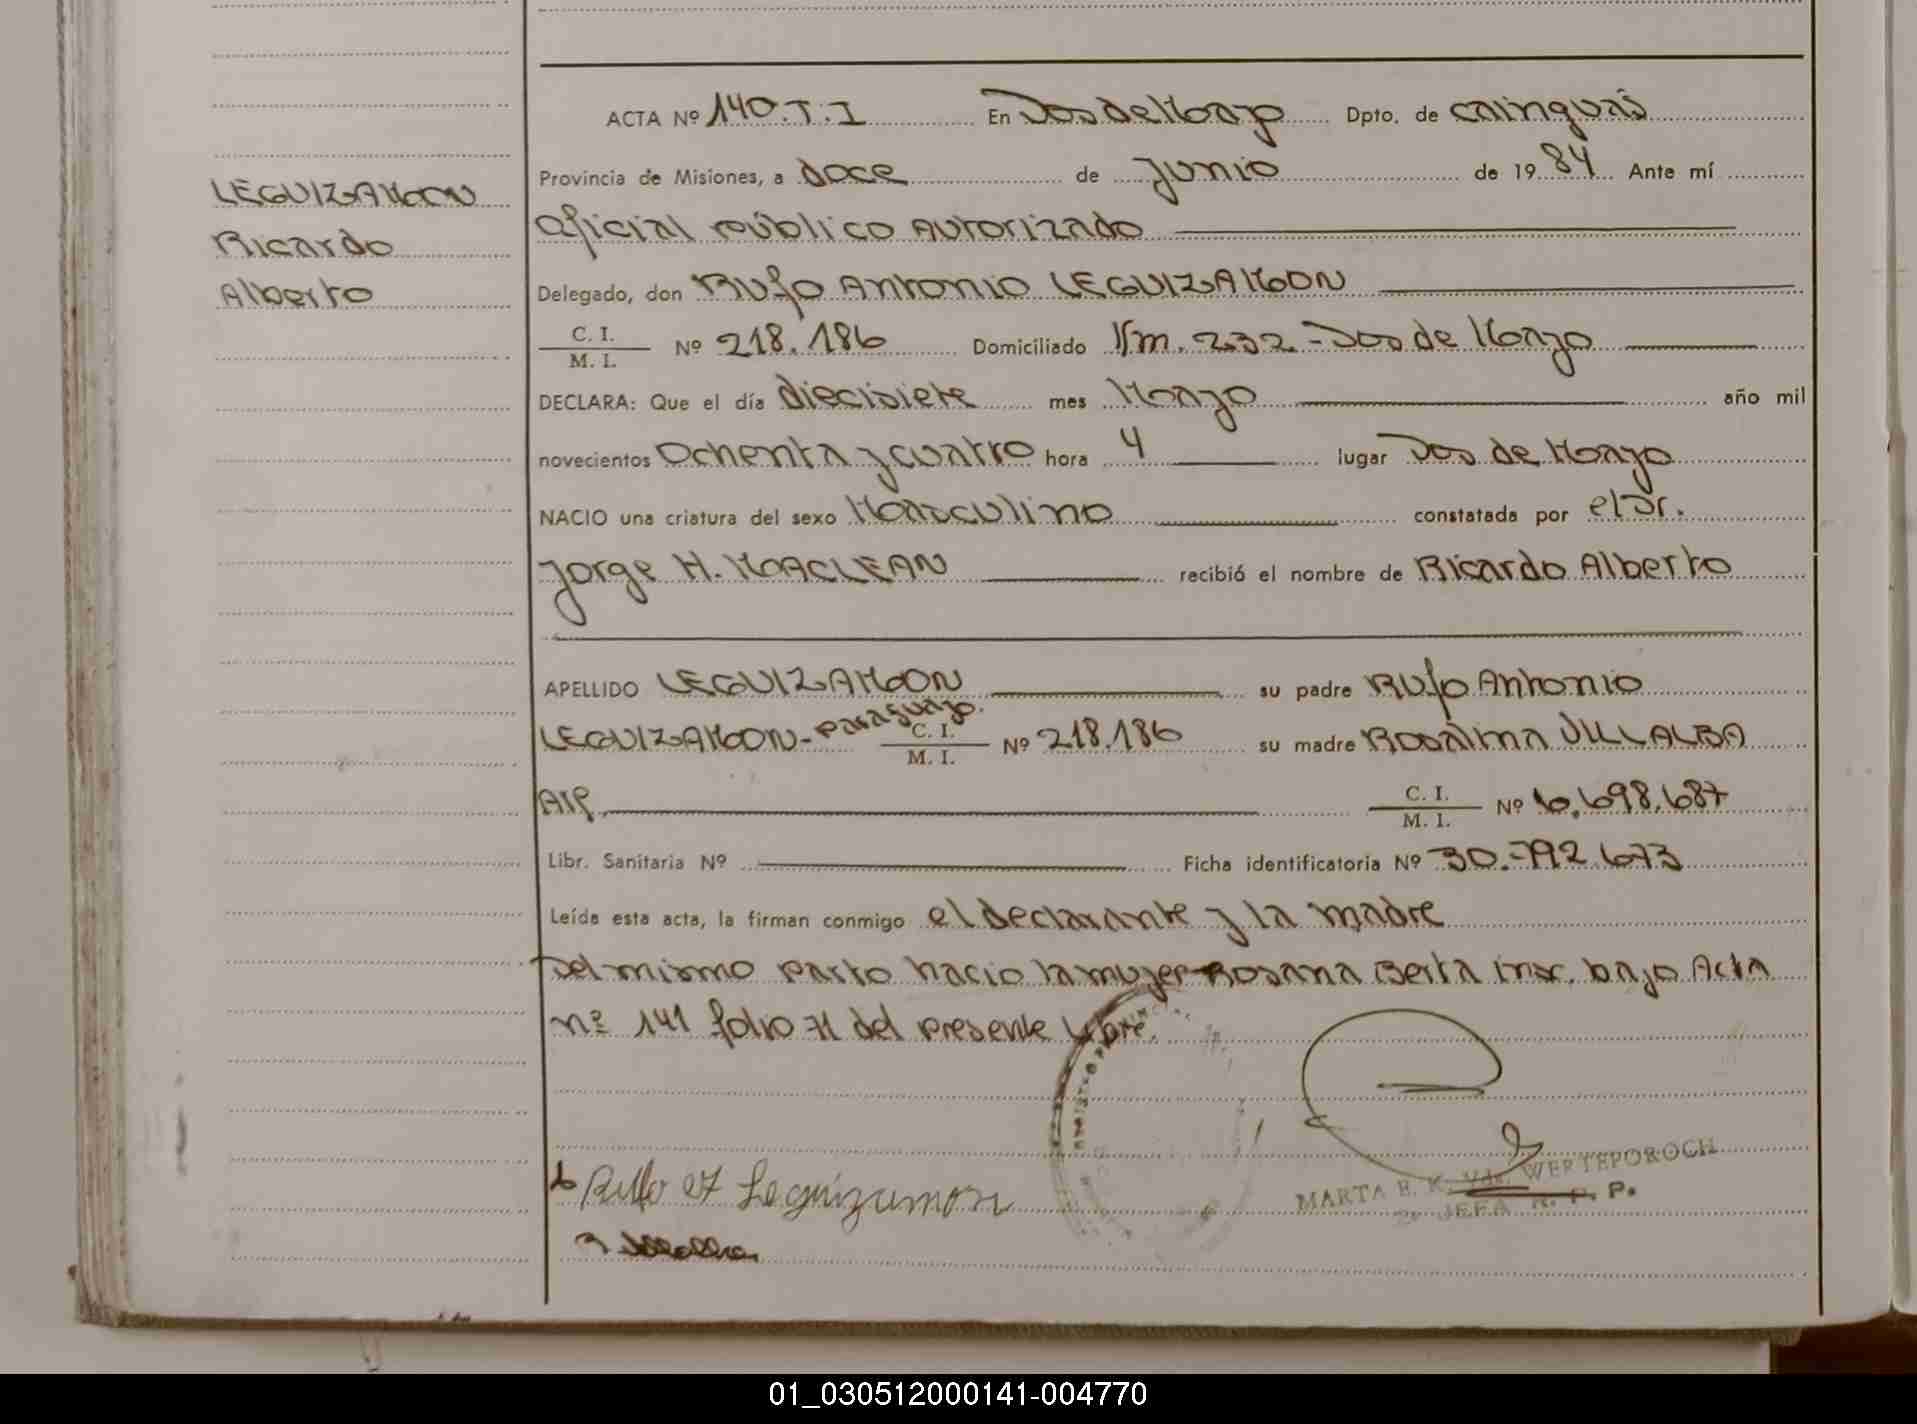 ACTA Nº 140.T.I En Dos de Mayo Dpto. de Cainguás
Provincia de Misiones, a doce de Junio de 1984 Ante mí
LEGUIZAMON
Oficial público Autorizado
Ricardo
Alberto
Delegado, don Rufo Antonio LEGUIZAMON
C. I.
M. I.
Nº 218.186 Domiciliado Km. 232 - Dos de Mayo
DECLARA: Que el día diecisiete mes Marzo año mil
novecientos Ochenta y cuatro hora 4 lugar Dos de Mayo
NACIO una criatura del sexo Masculino constatada por el Dr.
Jorge H. MACLEAN recibió el nombre de Ricardo Alberto
APELLIDO LEGUIZAMON su padre Rufo Antonio
LEGUIZAMON - paraguayo. C. I.
M. I.
Nº 218.186 su madre Rosalina VILLALBA
Arg. C. I.
M. I.
Nº 6.698.687
Libr. Sanitaria Nº Ficha identificatoria Nº 30.792.673
Leída esta acta, la firman conmigo el declarante y la madre
Del mismo parto nació la mujer Rosana Berta insc. bajo Acta
nº 141 folio 71 del presente Libro.
Rufo A Leguizamon
MARTA E. K. Vda. WERTEPOROCH
JEFA R. P. P.
01_030512000141-004770